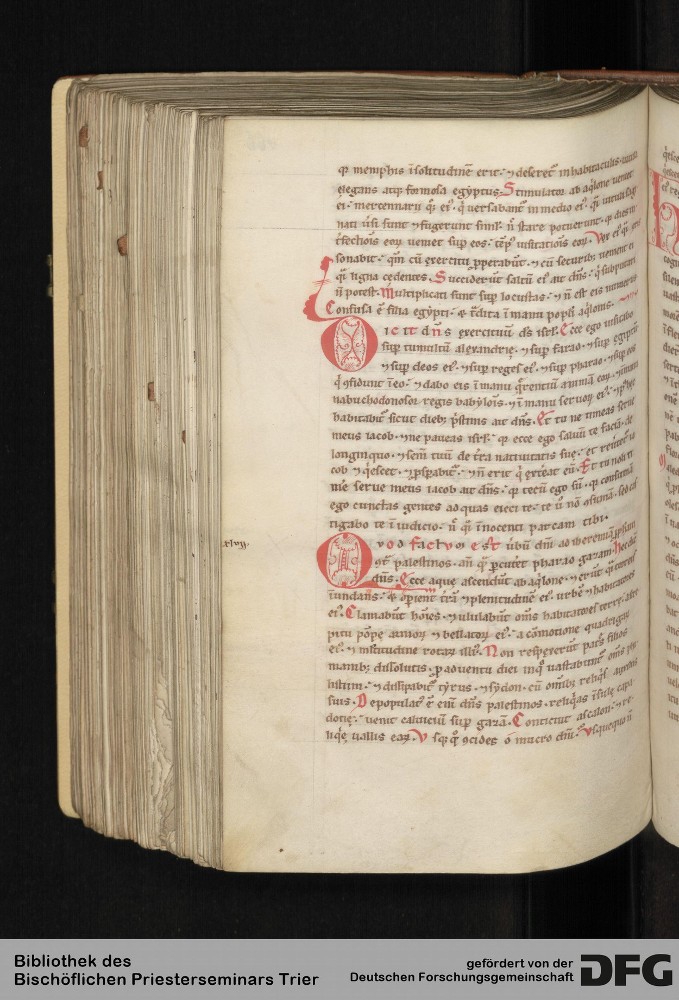 qꝫ memphis ī solitudinē erit · ⁊ deseret̄ inhabitabilis · uitula
elegans atqꝫ formosa egyptus · Stimulator ab aq̇lone ueniet
ei · mercennarii qꝫ ei᷒ · q̇ uersabant̄ in medio ei᷒ · q̄ uituli sagi
nati ūsi sunt ⁊ fugerunt simł · n̄ stare potuerunt · qꝫ dies in
t̄fectiōis eoꝝ ueniet suꝑ eos · tēpꝰ uisitatiōis eoꝝ · Vox ei᷒ q̄ eris
sonabit · qm̄ cū exercitu ꝓperabūt · ⁊ cū securibꝫ uenient ei
q̄i ligna cedentes · Succiderūt saltū ei᷒ ait dn̄s · q̇ supputari
n̄ potest · Multiplicati sunt suꝑ locustas · ⁊ n̄ est eis numerus
Confusa ē filia egypti · ⁊ t̄dita ī manu popłi aq̇lonis ·
Dicit dn̄s exercituū ds̄ isrł · Ecce ego uisitabo
suꝑ tumultū alexandrie · ⁊ suꝑ farao · ⁊ suꝑ egyptū
⁊ suꝑ deos ei᷒ · ⁊ suꝑ reges ei᷒ · ⁊ suꝑ pharao · ⁊ suꝑ eos
q̇ ꝯfidunt ī eo · ⁊ dabo eis ī manu q̄rentiū animā eoꝝ · ⁊ ī manu
nabuchodonosor regis babyłois · ⁊ ī manu seruoꝝ ei᷒ · ⁊ p᷒ hec
habitabit̄ sicut diebꝫ pristinis ait dn̄s · Et tu ne timeas serue
meus iacob · ⁊ ne paueas isrł · qꝫ ecce ego saluū te faciā · de
longinquo · ⁊ sem̄ tuū de t̄ra natiuitatis sue · et reuertet̄ ia
cob ⁊ q̇escet · ⁊ ꝓsꝑabit̄ · ⁊ n̄ erit q̇ ext̄reat eū · Et tu noli ti
me serue meus iacob ait dn̄s · qꝫ tecū ego sū · qꝫ consumā
ego cunctas gentes ad quas eieci te · te ū nō ꝯsumā · sed cas
tigabo te ī iudicio · n̄ q̄i īnocenti parcam tibi ·
xlvii.
Quod factum est ūbū dn̄i ad iheremiā ꝓphetam
ꝯt̄ palestinos · an̄ q̄ ꝑcutet̄ pharao gazam · Hec dic̄
dn̄s · Ecce aque ascendūt ab aq̇lone · ⁊ erūt q̄i torrens
īundans · ⁊ oꝑient t̄rā ⁊ plenitudinē ei᷒ · urbē ⁊ habitatores
ei᷒ · Clamabūt hoīes · ⁊ ululabūt om̄s habitatores terre · a stre
pitu pōpe armoꝝ ⁊ bellatoꝝ ei᷒ · a cōmotione quadrigaꝝ
ei᷒ · ⁊ multitudine rotaꝝ illi᷒ · Non respexerūt patres filios
manibꝫ dissolutis · ꝓ aduentu diei in q̇ uastabunt̄ om̄s phi
listiim · ⁊ dissipabit̄ tyrus · ⁊ sydon · cū omībꝫ reliq̇s auxiliis
suis · Depopulat᷒ ē eniī dn̄s palestinos · reliq̇as īsule capa
docie · uenit caluiciū suꝑ gazā · Conticuit ascalon · ⁊ re
liq̇e uallis eaꝝ · Vsqꝫ q̄o ꝯcides ó mucro dn̄i · Vsquequo n̄
Bibliothek des
Bischöflichen Priesterseminars Trier
gefördert von der
Deutschen Forschungsgemeinschaft DFG